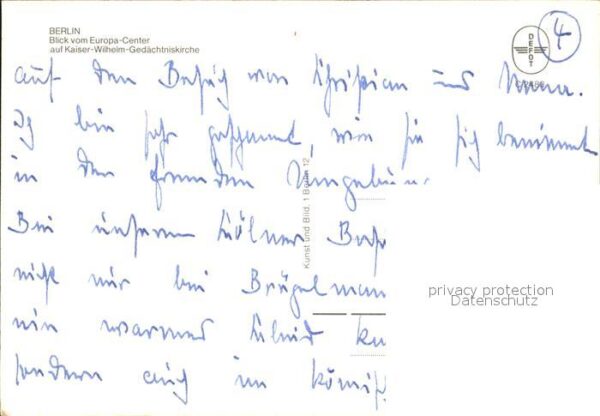 BERLIN
Blick vom Europa-Center
auf Kaiser-Wilhelm-Gedächtniskirche
4
DEFOT
auf den Besuch von Christian und
Ich bin sehr gespannt, wie sie sich benimmt
in der fremden Umgebung.
Bei unserem Kölner Besu
nicht nur bei Brügelman
ein warmes Kleid ku
sondern auch im
Kunst und Bild, 1 Berlin 12
privacy protection
Datenschutz